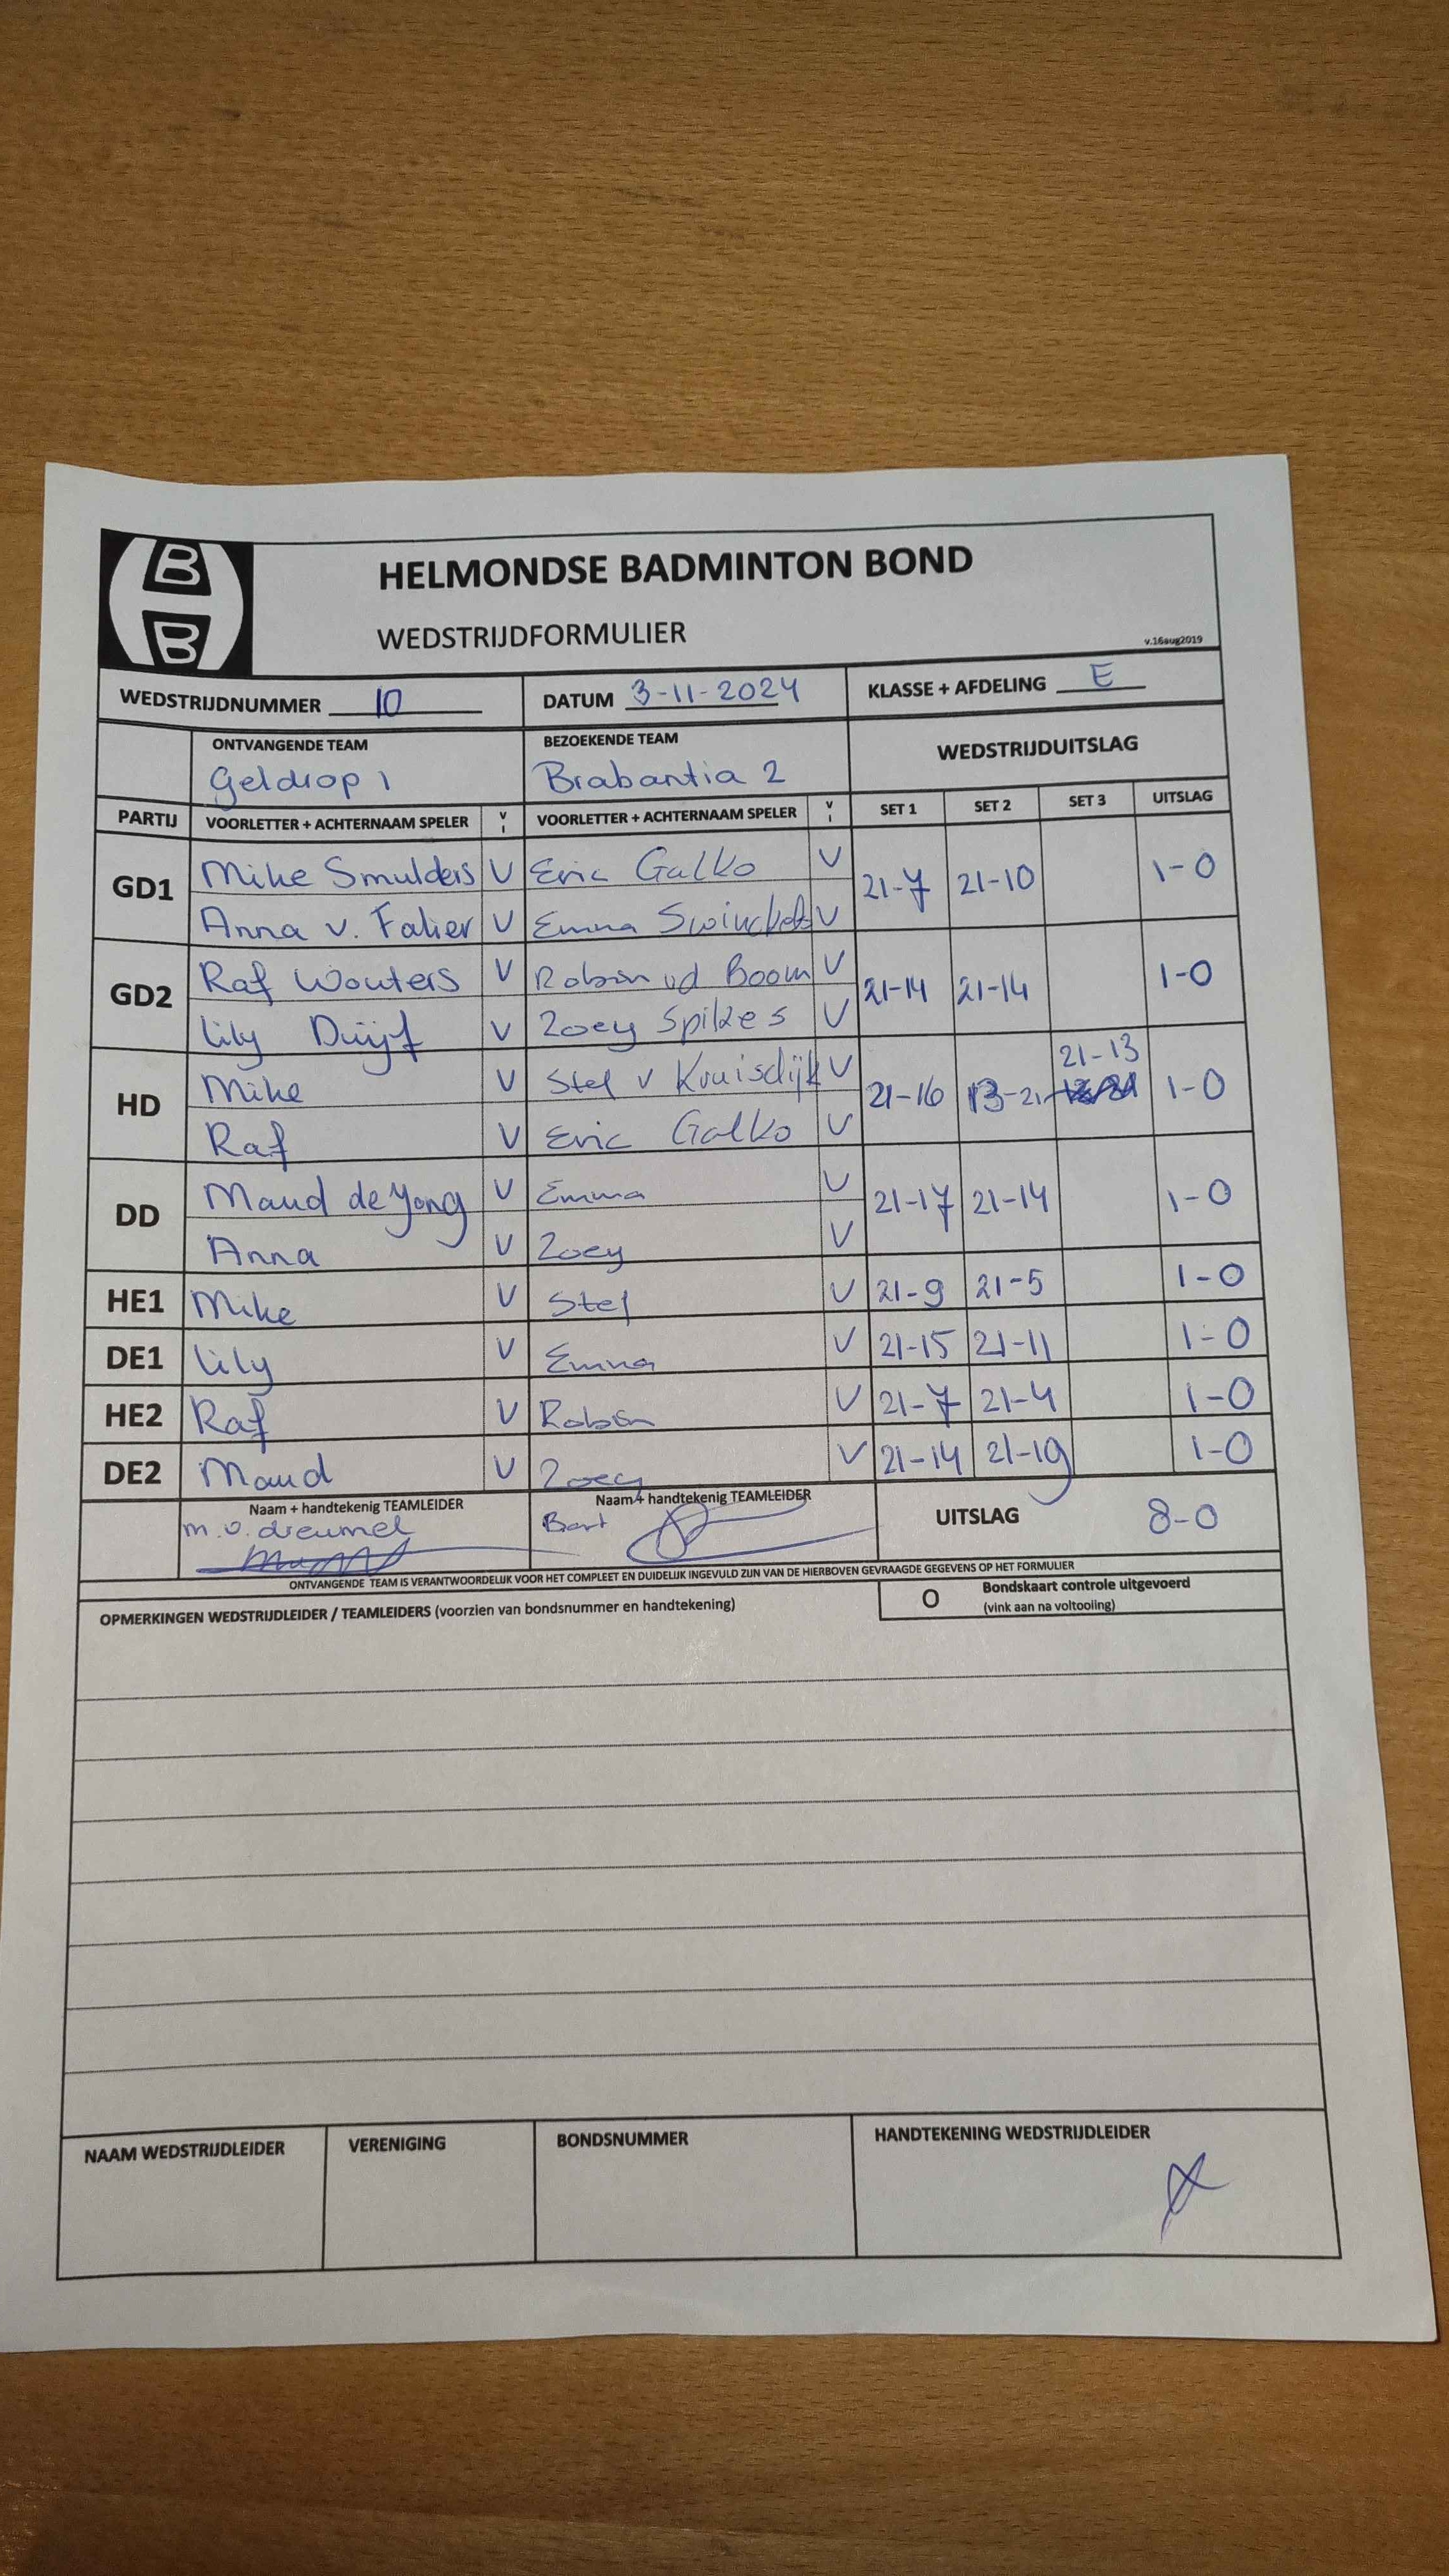 B
B
HELMONDSE BADMINTON BOND
WEDSTRIJDFORMULIER
v.16aug2019
WEDSTRIJDNUMMER 10 DATUM 3-11-2024 KLASSE + AFDELING E
ONTVANGENDE TEAM BEZOEKENDE TEAM WEDSTRIJDUITSLAG
Geldrop 1 Brabantia 2
PARTIJ VOORLETTER + ACHTERNAAM SPELER V I VOORLETTER + ACHTERNAAM SPELER V I SET 1 SET 2 SET 3 UITSLAG
GD1 Mike Smulders V Eric Galko V 21-7 21-10 1-0
Anna v. Falier V Emma Swinckels V
GD2 Raf Wouters V Robin vd Boom V 21-14 21-14 1-0
Lily Duijf V Zoey Spikes V
HD Mike V Stef v Kruisdijk V 21-16 13-21 21-13 1-0
Raf V Eric Galko V
DD Maud de Yong V Emma V 21-17 21-14 1-0
Anna V Zoey V
HE1 Mike V Stef V 21-9 21-5 1-0
DE1 Lily V Emma V 21-15 21-11 1-0
HE2 Raf V Robin V 21-7 21-4 1-0
DE2 Maud V Zoey V 21-14 21-19 1-0
Naam + handtekenig TEAMLEIDER Naam + handtekenig TEAMLEIDER UITSLAG 8-0
m.v. dreumel Bart
ONTVANGENDE TEAM IS VERANTWOORDELIJK VOOR HET COMPLEET EN DUIDELIJK INGEVULD ZIJN VAN DE HIERBOVEN GEVRAAGDE GEGEVENS OP HET FORMULIER
OPMERKINGEN WEDSTRIJDLEIDER / TEAMLEIDERS (voorzien van bondsnummer en handtekening) O Bondskaart controle uitgevoerd
(vink aan na voltooiing)
NAAM WEDSTRIJDLEIDER VERENIGING BONDSNUMMER HANDTEKENING WEDSTRIJDLEIDER